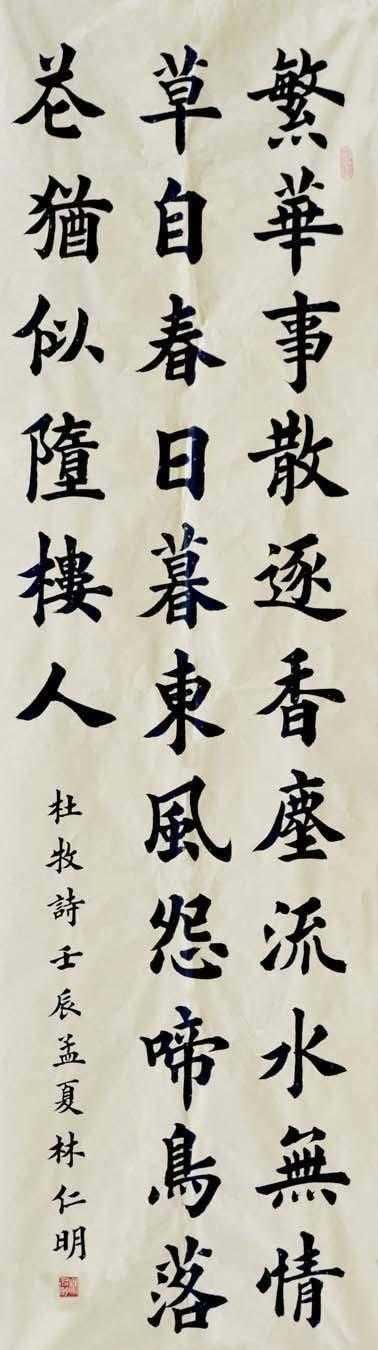 繁華事散逐香塵流水無情
草自春日暮東風怨啼鳥落
花猶似墮樓人
杜牧詩壬辰孟夏林仁明